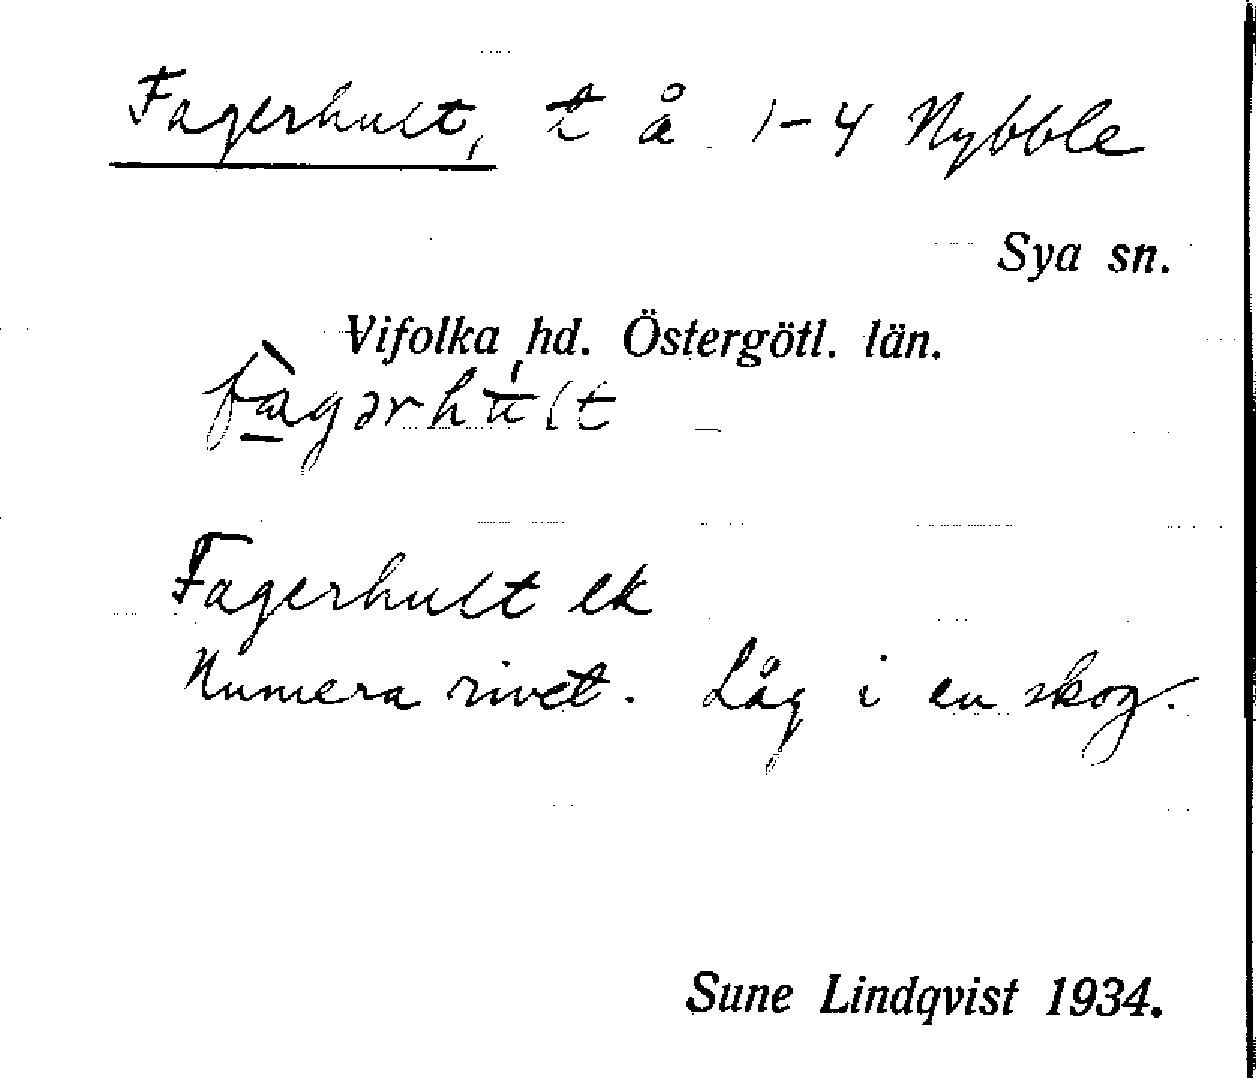 Fagerhult, t å 1-4 Nybble
Sya sn.
Vifolka hd. Östergötl. län.
fàgərhu̍lt
Fagerhult ek
Numera rivet. Låg i en skog.
Sune Lindqvist 1934.